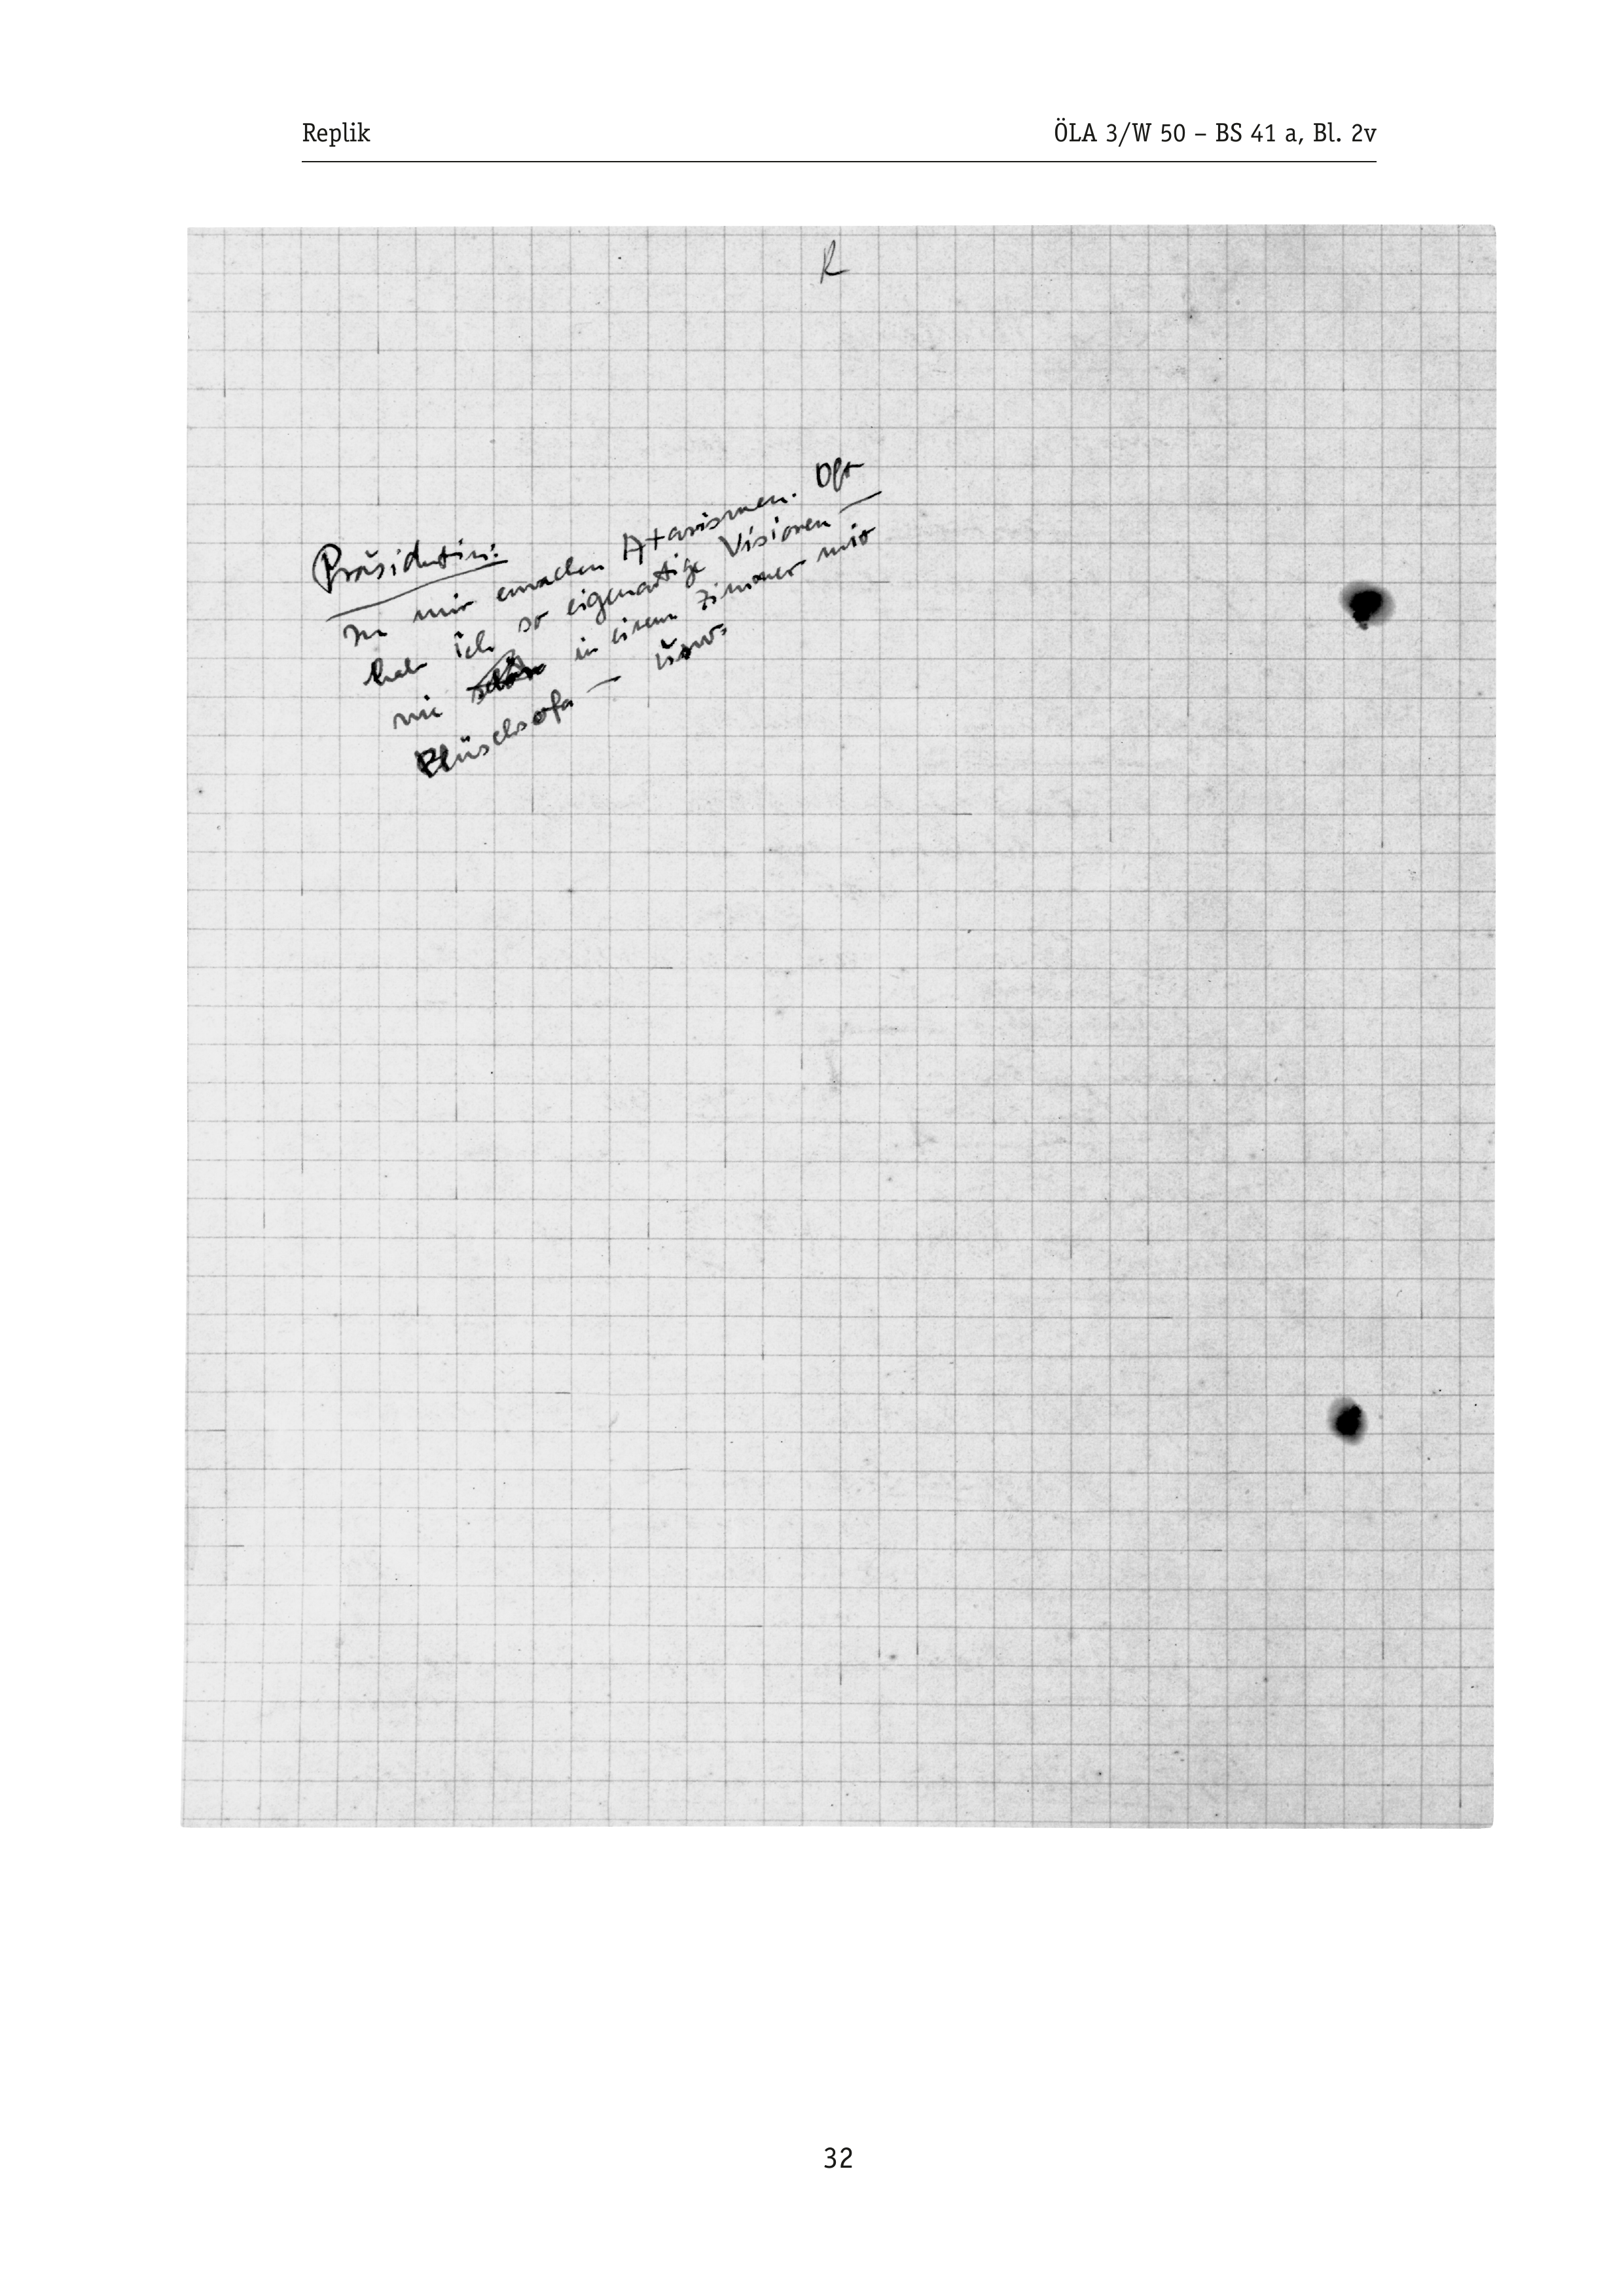 Replik ÖLA 3/W 50 – BS 41 a, Bl. 2v
R
Präsidentin:
In mir erwachen Atavismen. Oft
hab ich so eigenartige Visionen —
wie in einem Zimmer mit
Plüschsofa — usw.
32